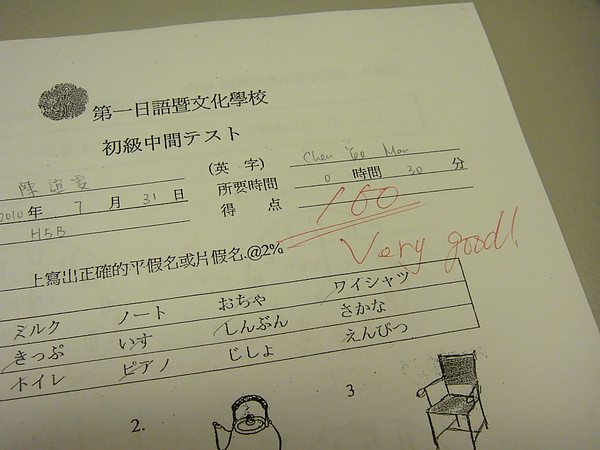 第一日語暨文化學校
初級中間テスト
陳 (英 字) Chen Yee Man
2010 年 7 月 31 日 所要時間 0 時間 30 分
H5B 得 点 100
Very good!
上寫出正確的平假名或片假名.@2%
ミルク ノート おちゃ ワイシャツ
きっぷ いす しんぶん さかな
トイレ ピアノ じしょ えんぴつ
2. 3